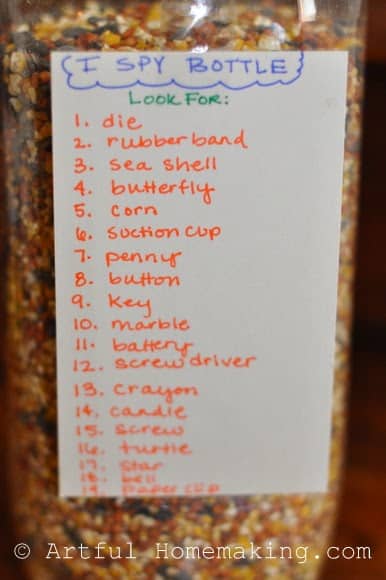 I SPY BOTTLE
LOOK FOR:
1. die
2. rubber band
3. sea shell
4. butterfly
5. corn
6. suction cup
7. penny
8. button
9. key
10. marble
11. battery
12. screw driver
13. crayon
14. candle
15. screw
16. turtle
17. star
18. bell
19. paper clip
© Artful Homemaking.com